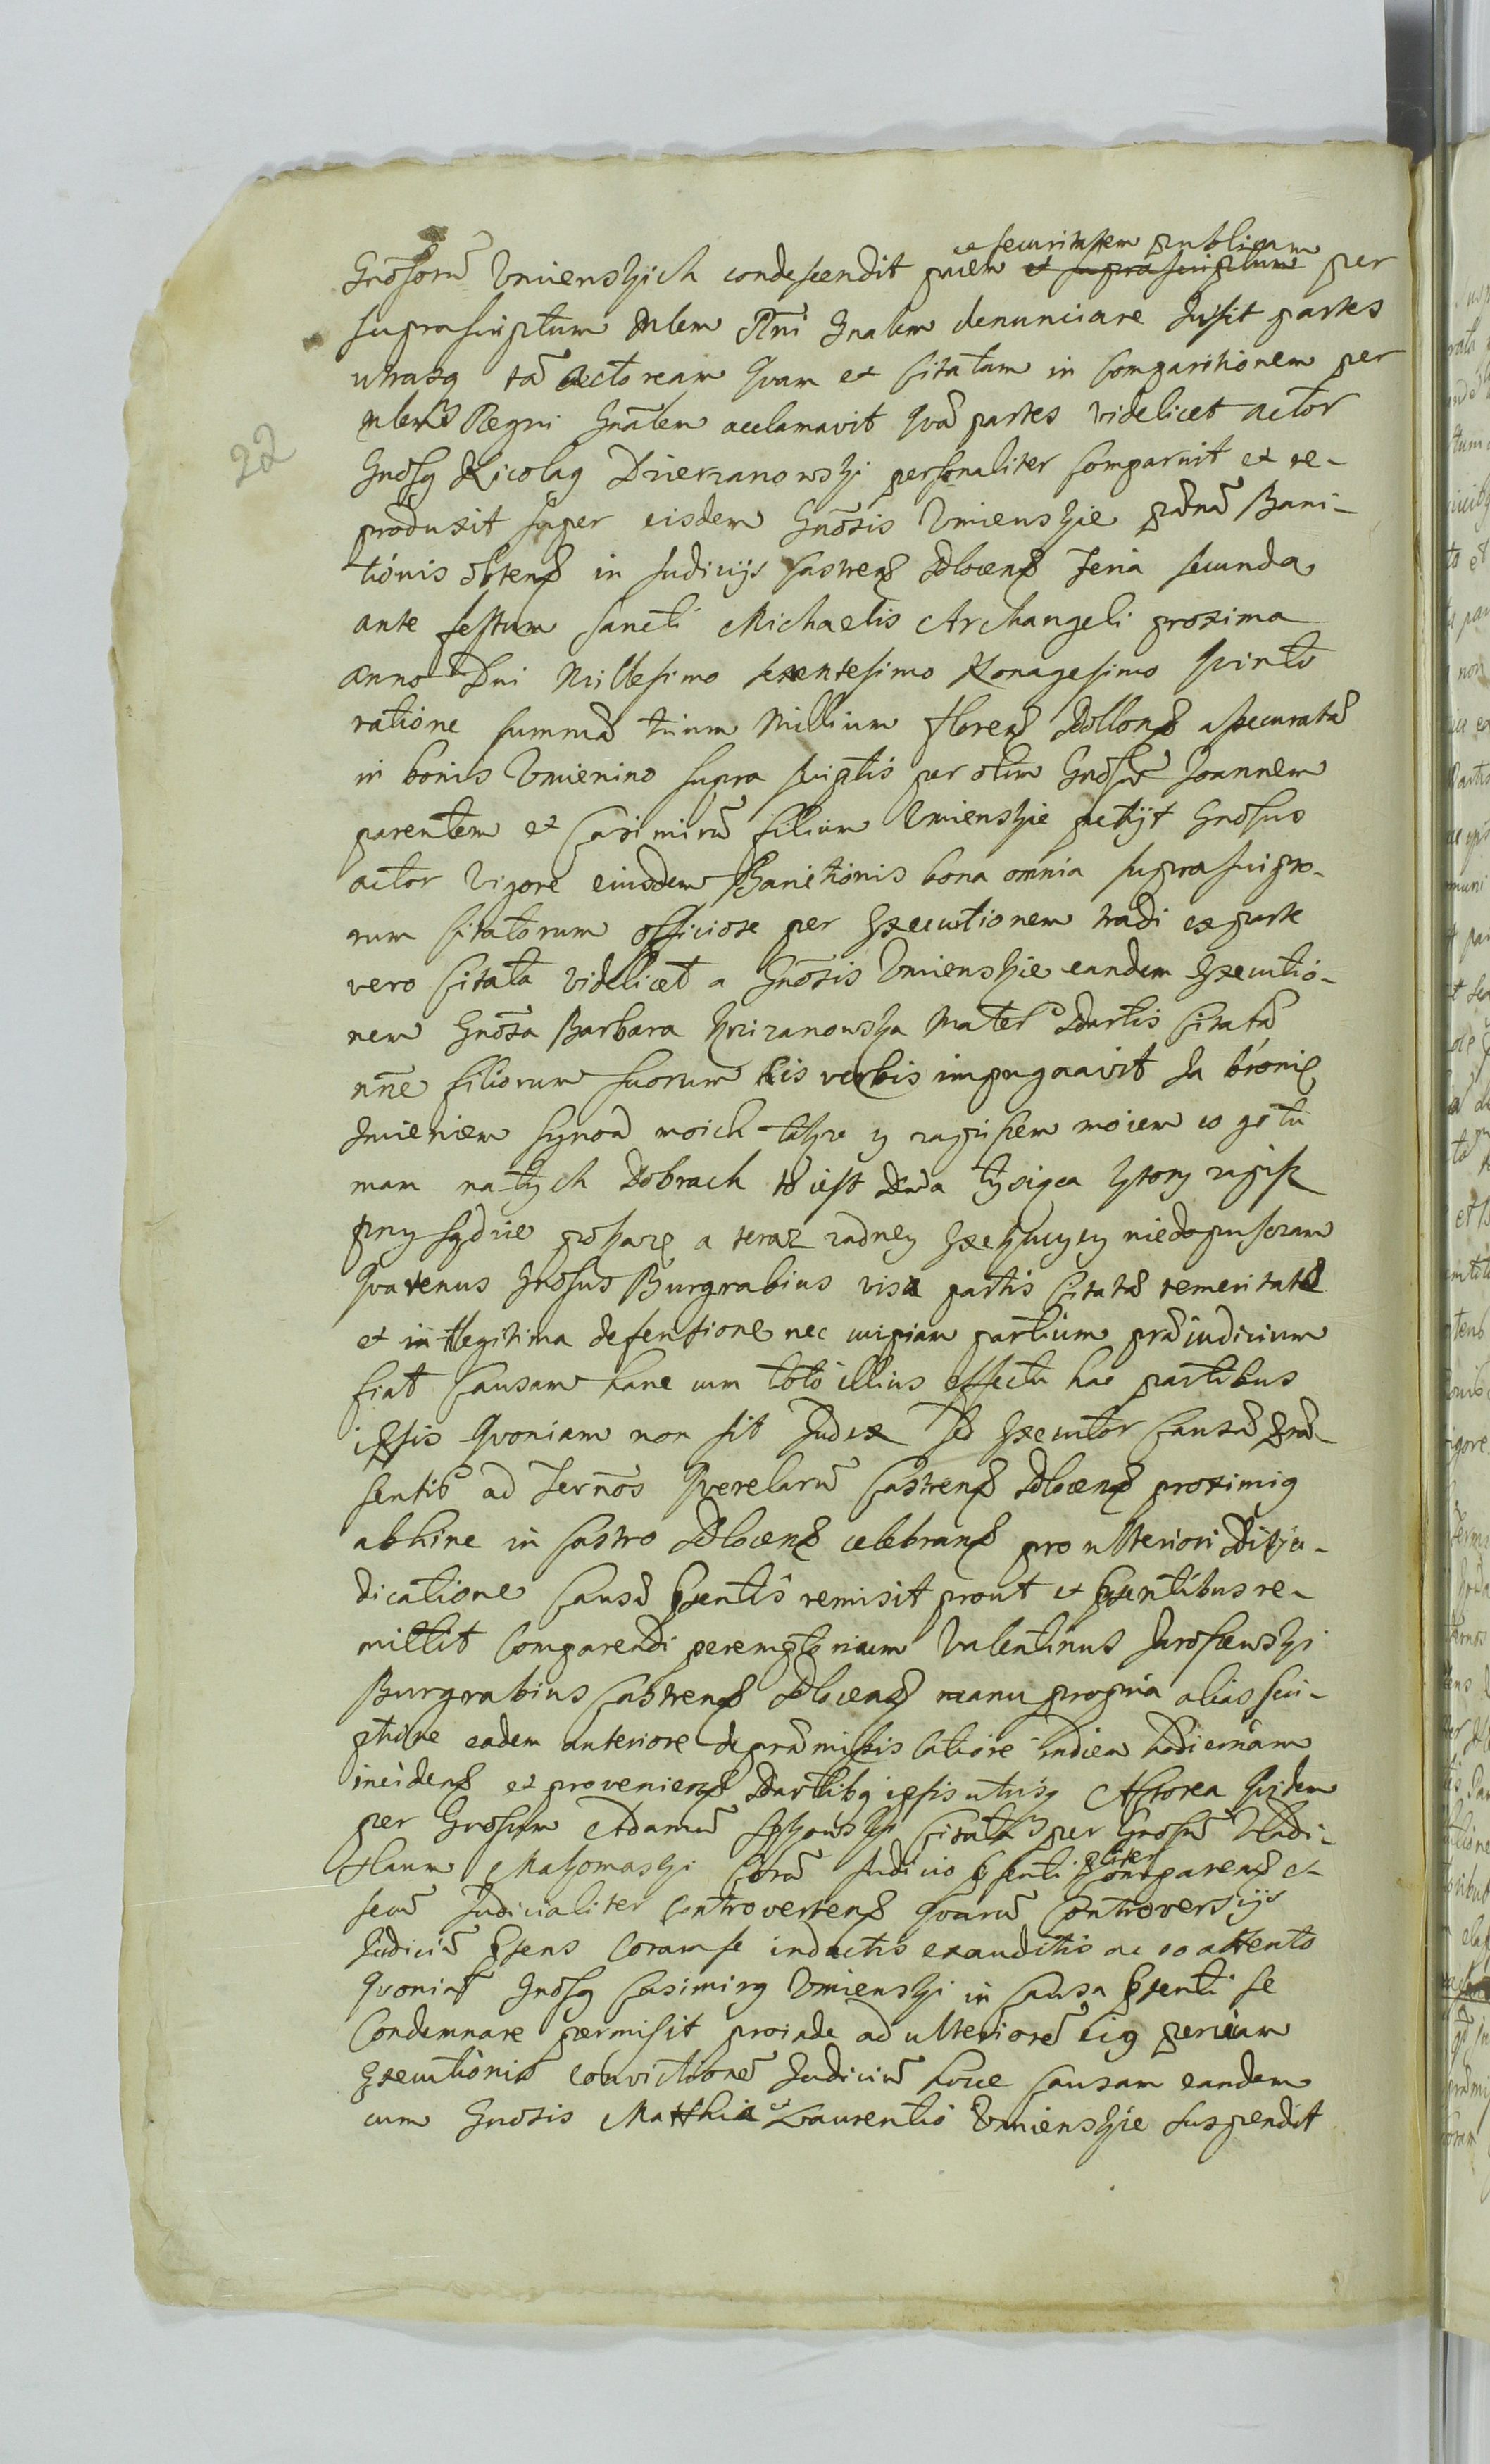 et securitatem publicam
Gnosorũ Umienskich condescendit pacem et suprascriptum per
suprascriptum Mlem Rni Gnalem denunciare Jusit partes
utrasq tã Actoream Quam et Citatam in Comparitionem per
Mlem Regni Gnãlem acclamavit Quã partes videlicet actor
22
Gnosq Nicolaq Dzierzanowski personaliter Comparuit et re-
produxit super eisdem Gnõsis Umienskie pænã Bani-
tionis obtenß in Judicijs Castrenß Plocenß Feria secunda
ante festum Sancti Michaelis Archangeli proxima
Anno Dni Millesimo sexentesimo Nonagesimo Quinto
ratione summæ trium Millium Florenß Pollonß assecuratæ
in bonis Umienino supra scriptis per olim Gnosũ Joannem
parentem et Casimirũ filium Umienskie petijt Gnosus
actor vigore eiusdem Banitionis bona omnia suprascripto-
rum Citatorum officiose per Executionem tradi ex parte
vero Citata videlicet a Gnõsis Umienskie eandem Executio-
nem Gnõsa Barbara Krzizanowska Mater Partis Citatæ
nñe filiorum suorum his verbis impugnavit Ja bronię
Jmieniem Synow moich takze y zapisem moiem co go tu
mam na tych Dobrach to iest Dwa tysiąca ktory zapis
przy sądzie pokazę a teraz zadney Exekucyey niedopuszczam
Quatenus Gnosus Burgrabius visa partis Citatæ temeritate
et in illegitima defensione nec cuipiam partium præiudicium
fiat Causam hanc cum toto illius effectu hac partibus
ipsis Quoniam non sit Judex sed Executor Causæ præ-
sentis ad Termos Querelarũ Castrenß Plocenß proximiq
abhinc in Castro Plocenß celebranß pro ulteriori Diiju-
dicatione Causæ pñsentis remisit prout et pñsentibus re-
mittit Comparendi peremptorium Valentinus Jaroszewski
Burgrabius Castrenß Plocenß manu propria alias scri-
ptione eadem anteriore de præmissis latiore Indiem hodiernam
incidenß et provenienß Partibq ipsis utrisq Actorea Quidem
per Gnosum Adamũ Citata per Gnosũ Vladi-
pliter
slaum Makomaski Corã Judicio pñsenti Comparenß et
secũ Judicialiter Controvertenß Quarũ Controversijs
Judiciũ pñsens Coram se inductis exauditis ac eo attento
Quoniã Gnosq Casimirq Umienski in Causa pñsenti se
Condemnare permisit proinde ad ulteriorẽ eiq
Executionis convictionẽ Judiciũ hocce Causam eandem
cum Gnosis Matthia et Laurentio Umienskie suspendit